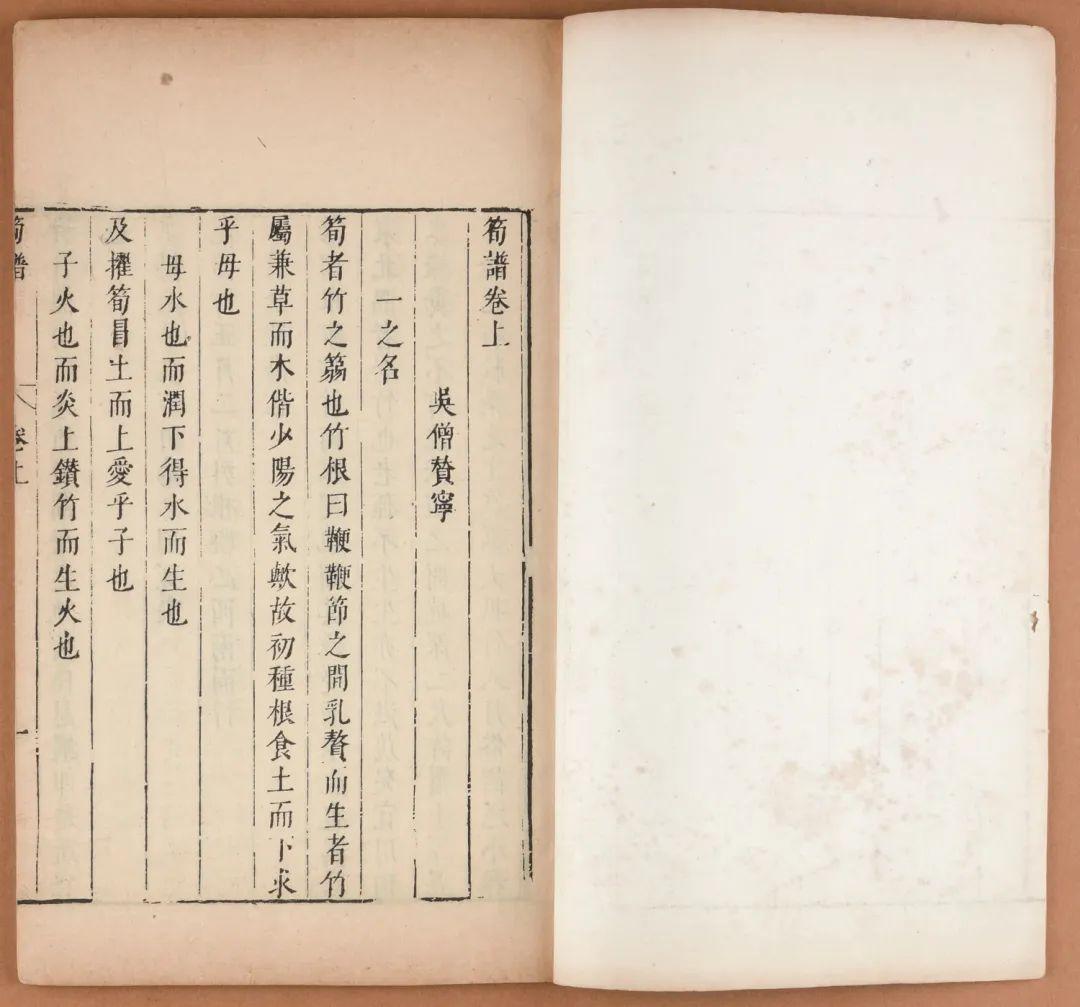 筍譜卷上
吳僧贊寧
一之名
筍者竹之篛也竹根曰鞭鞭節之間乳贅而生者竹
屬兼草而木偕少陽之氣歟故初種根食土而下求
乎母也
母水也而潤下得水而生也
及擢筍冒土而上愛乎子也
子火也而炎上鑚竹而生火也
筍譜 卷上 一